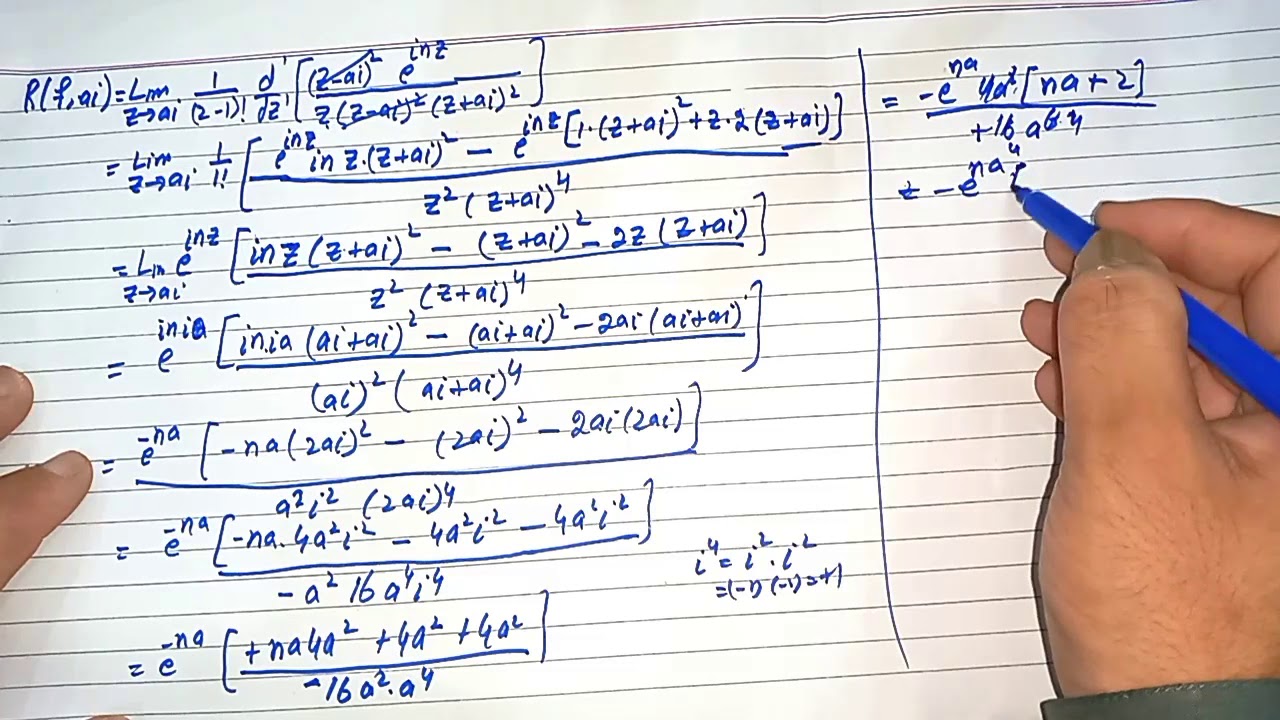 R(f,ai) = Lim z→ai 1/(2-1)! d'/dz' [(z-ai)² e^{inz} / z·(z-ai)² (z+ai)²]
= Lim z→ai 1/1! [e^{inz} in z·(z+ai)² - e^{inz} [1·(z+ai)² + z·2(z+ai)] / z² (z+ai)⁴]
= Lim z→ai e^{inz} [in z (z+ai)² - (z+ai)² - 2z (z+ai) / z² (z+ai)⁴]
= e^{inia} [in·ia (ai+ai)² - (ai+ai)² - 2ai (ai+ai) / (ai)² (ai+ai)⁴]
= e^{-na} [-na (2ai)² - (2ai)² - 2ai (2ai)] / a²i² (2ai)⁴
= e^{-na} [-na·4a²i² - 4a²i² - 4a²i² / -a² 16a⁴i⁴]
i⁴ = i²·i²
= (-1)·(-1) = +1
= e^{-na} [+na4a² + 4a² + 4a² / -16a²·a⁴]
= -e^{na} 4a² [na + 2] / +16 a^{6·4}
= -e^{na}